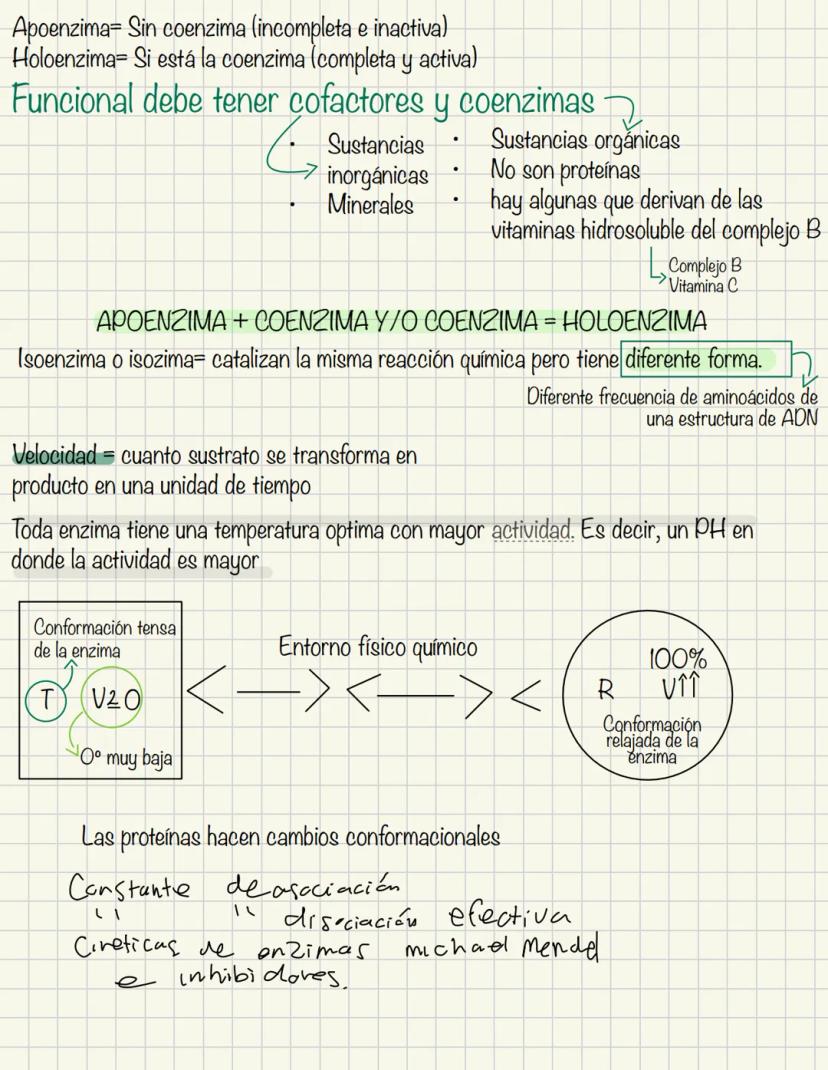 Apoenzima= Sin coenzima (incompleta e inactiva)
Holoenzima= Si está la coenzima (completa y activa)
Funcional debe tener cofactores y coenzimas
• Sustancias inorgánicas
• Minerales
• Sustancias orgánicas
• No son proteínas
• hay algunas que derivan de las
vitaminas hidrosoluble del complejo B
Complejo B
Vitamina C
APOENZIMA + COENZIMA Y/O COENZIMA = HOLOENZIMA
Isoenzima o isozima= catalizan la misma reacción química pero tiene diferente forma.
Diferente frecuencia de aminoácidos de
una estructura de ADN
Velocidad = cuanto sustrato se transforma en
producto en una unidad de tiempo
Toda enzima tiene una temperatura optima con mayor actividad. Es decir, un PH en
donde la actividad es mayor
Conformación tensa
de la enzima
T V≥0
0° muy baja
Entorno físico químico
100%
R V↑↑
Conformación
relajada de la
enzima
Las proteínas hacen cambios conformacionales
Constante de asociación
" " disociación efectiva
Cineticas de enzimas michael Mendel
e inhibidores.